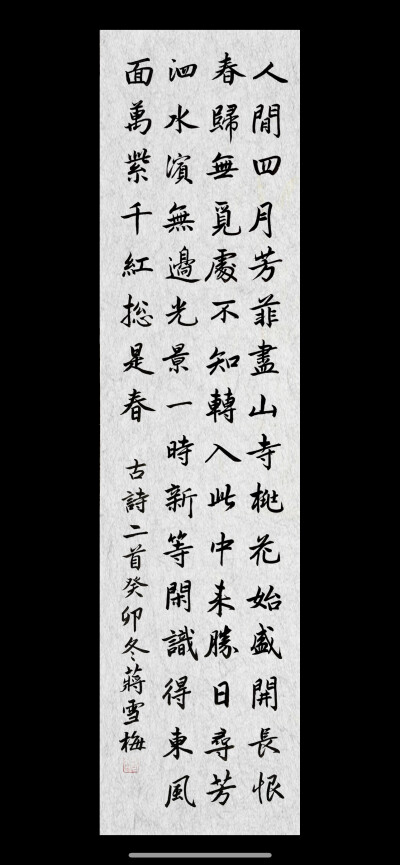 人間四月芳菲盡山寺桃花始盛開長恨
春歸無覓處不知轉入此中来勝日尋芳
泗水濱無邊光景一時新等閑識得東風
面萬紫千紅捴是春
古詩二首癸卯冬蔣雪梅